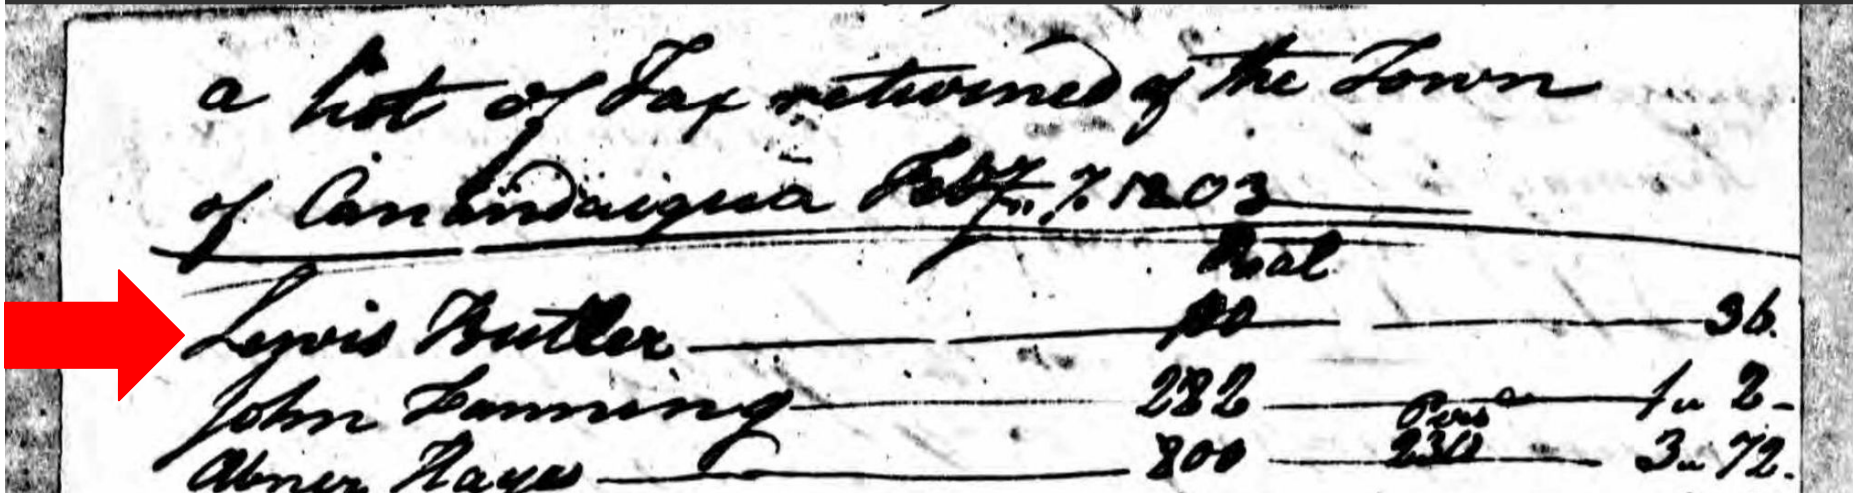 a List of Tax returned of the Town
of Canandaigua Feby. 7. 1803
Real
Lewis Butler 36.
John Fanning 282 1 " 2 -
Pers
Abner Hayes 800 230 3 " 72.